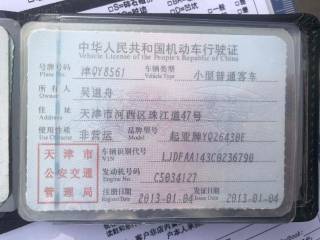 中华人民共和国机动车行驶证
Vehicle License of the People's Republic of China
号牌号码 津QY8561 车辆类型 小型普通客车
Plate No. Vehicle Type
所有人 吴道舟
Owner
住址 天津市河西区珠江道47号
Address
使用性质 非营运 品牌型号 起亚牌YQZ6430E
Use Character Model
天津市
公安交通
管理局
车辆识别代号 LJDFAA143C0236790
VIN
发动机号码 C5034127
Engine No.
注册日期 2013-01-04 发证日期 2013-01-04
Register Date Issue Date